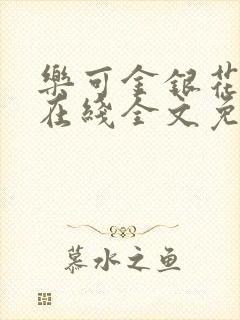 樂可金銀花
在綫全文免
慕水之鱼